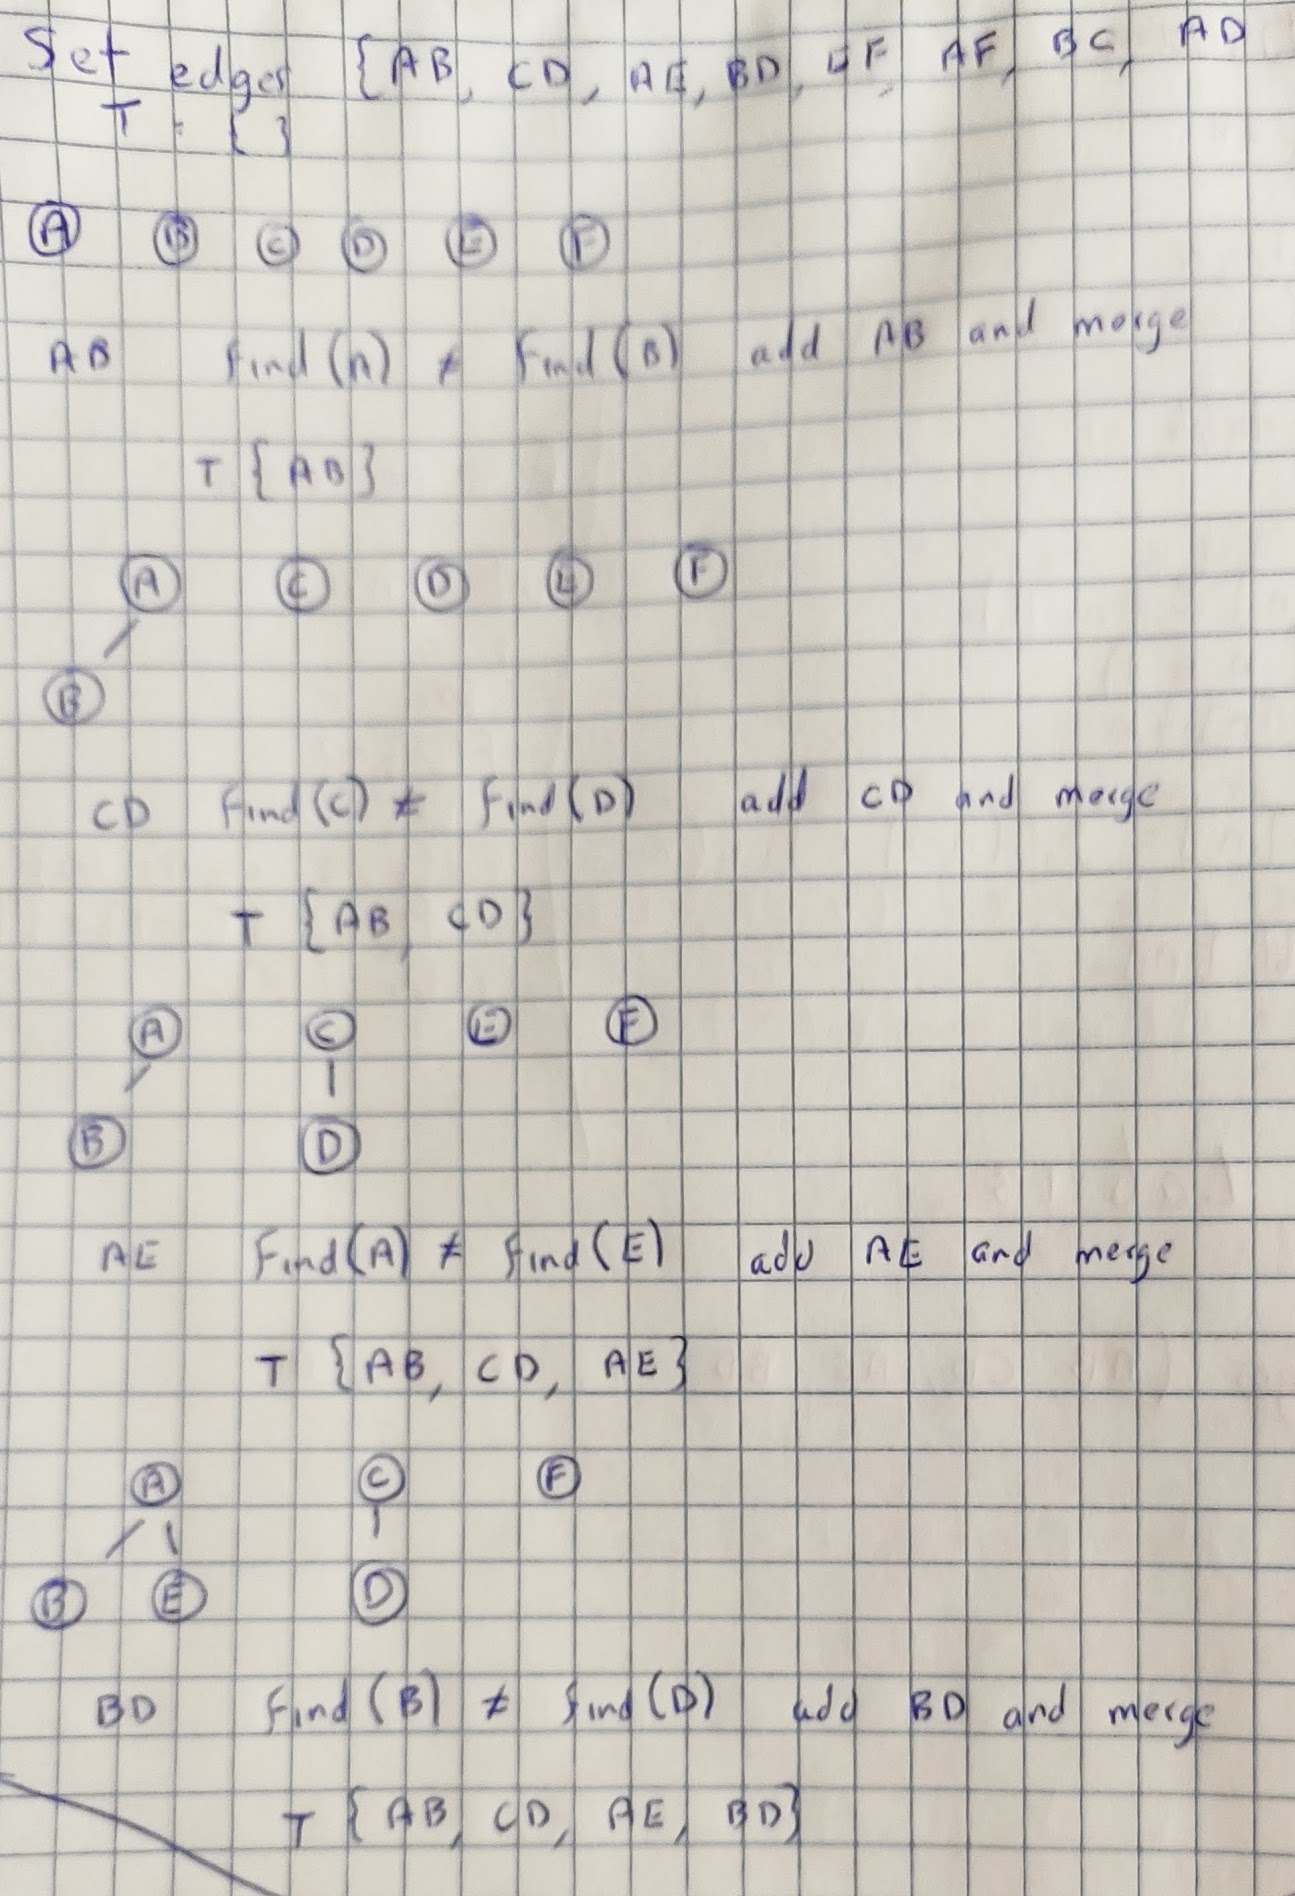 Set edges {AB, CD, AE, BD, EF, AF, BC, AD
T = { }
A B C D E F
AB find(A) ≠ find(B) add AB and merge
T {AB}
A C D E F
B
CD find(C) ≠ find(D) add CD and merge
T {AB, CD}
A C E F
B D
AE find(A) ≠ find(E) add AE and merge
T {AB, CD, AE}
A C F
B E D
BD find(B) ≠ find(D) add BD and merge
T {AB, CD, AE, BD}